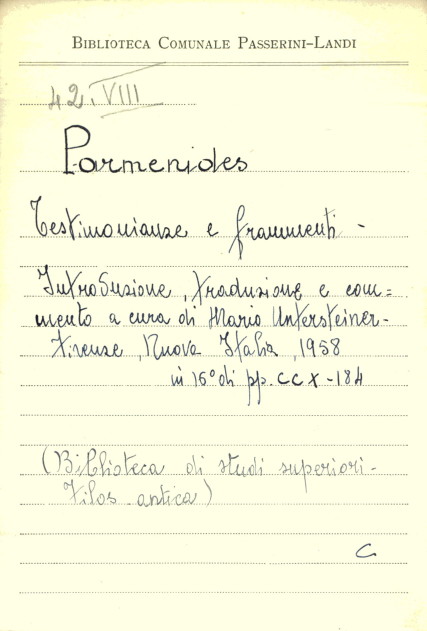 BIBLIOTECA COMUNALE PASSERINI-LANDI
42.VIII
Parmenides
Testimonianze e frammenti -
Introduzione, traduzione e com=
mento a cura di Mario Untersteiner-
Firenze, Nuova Italia, 1958
in 16° di pp. CCX-184
(Biblioteca di studi superiori-
Filos. antica)
C